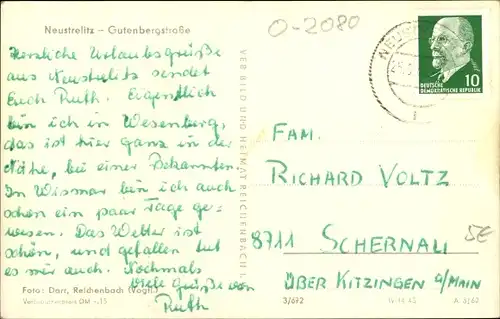 Neustrelitz – Gutenbergstraße
O-2080
Herzliche Urlaubsgrüße
aus Neustrelitz sendet
Euch Ruth. Eigentlich
bin ich in Wesenberg,
das ist hier ganz in der
Nähe, bei einer Bekannten.
In Wismar bin ich auch
schon ein paar Tage ge=
wesen. Das Wetter ist
schön, und gefallen tut
es mir auch. Nochmals
viele Grüße von
Ruth
Foto: Darr, Reichenbach (Vogtl.)
Verbraucherpreis DM -,15
VEB BILD UND HEIMAT REICHENBACH I. V.
10
DEUTSCHE
DEMOKRATISCHE REPUBLIK
FAM.
RICHARD VOLTZ
8711 SCHERNAU
ÜBER KITZINGEN a/MAIN
5€
3/692
A 3/62